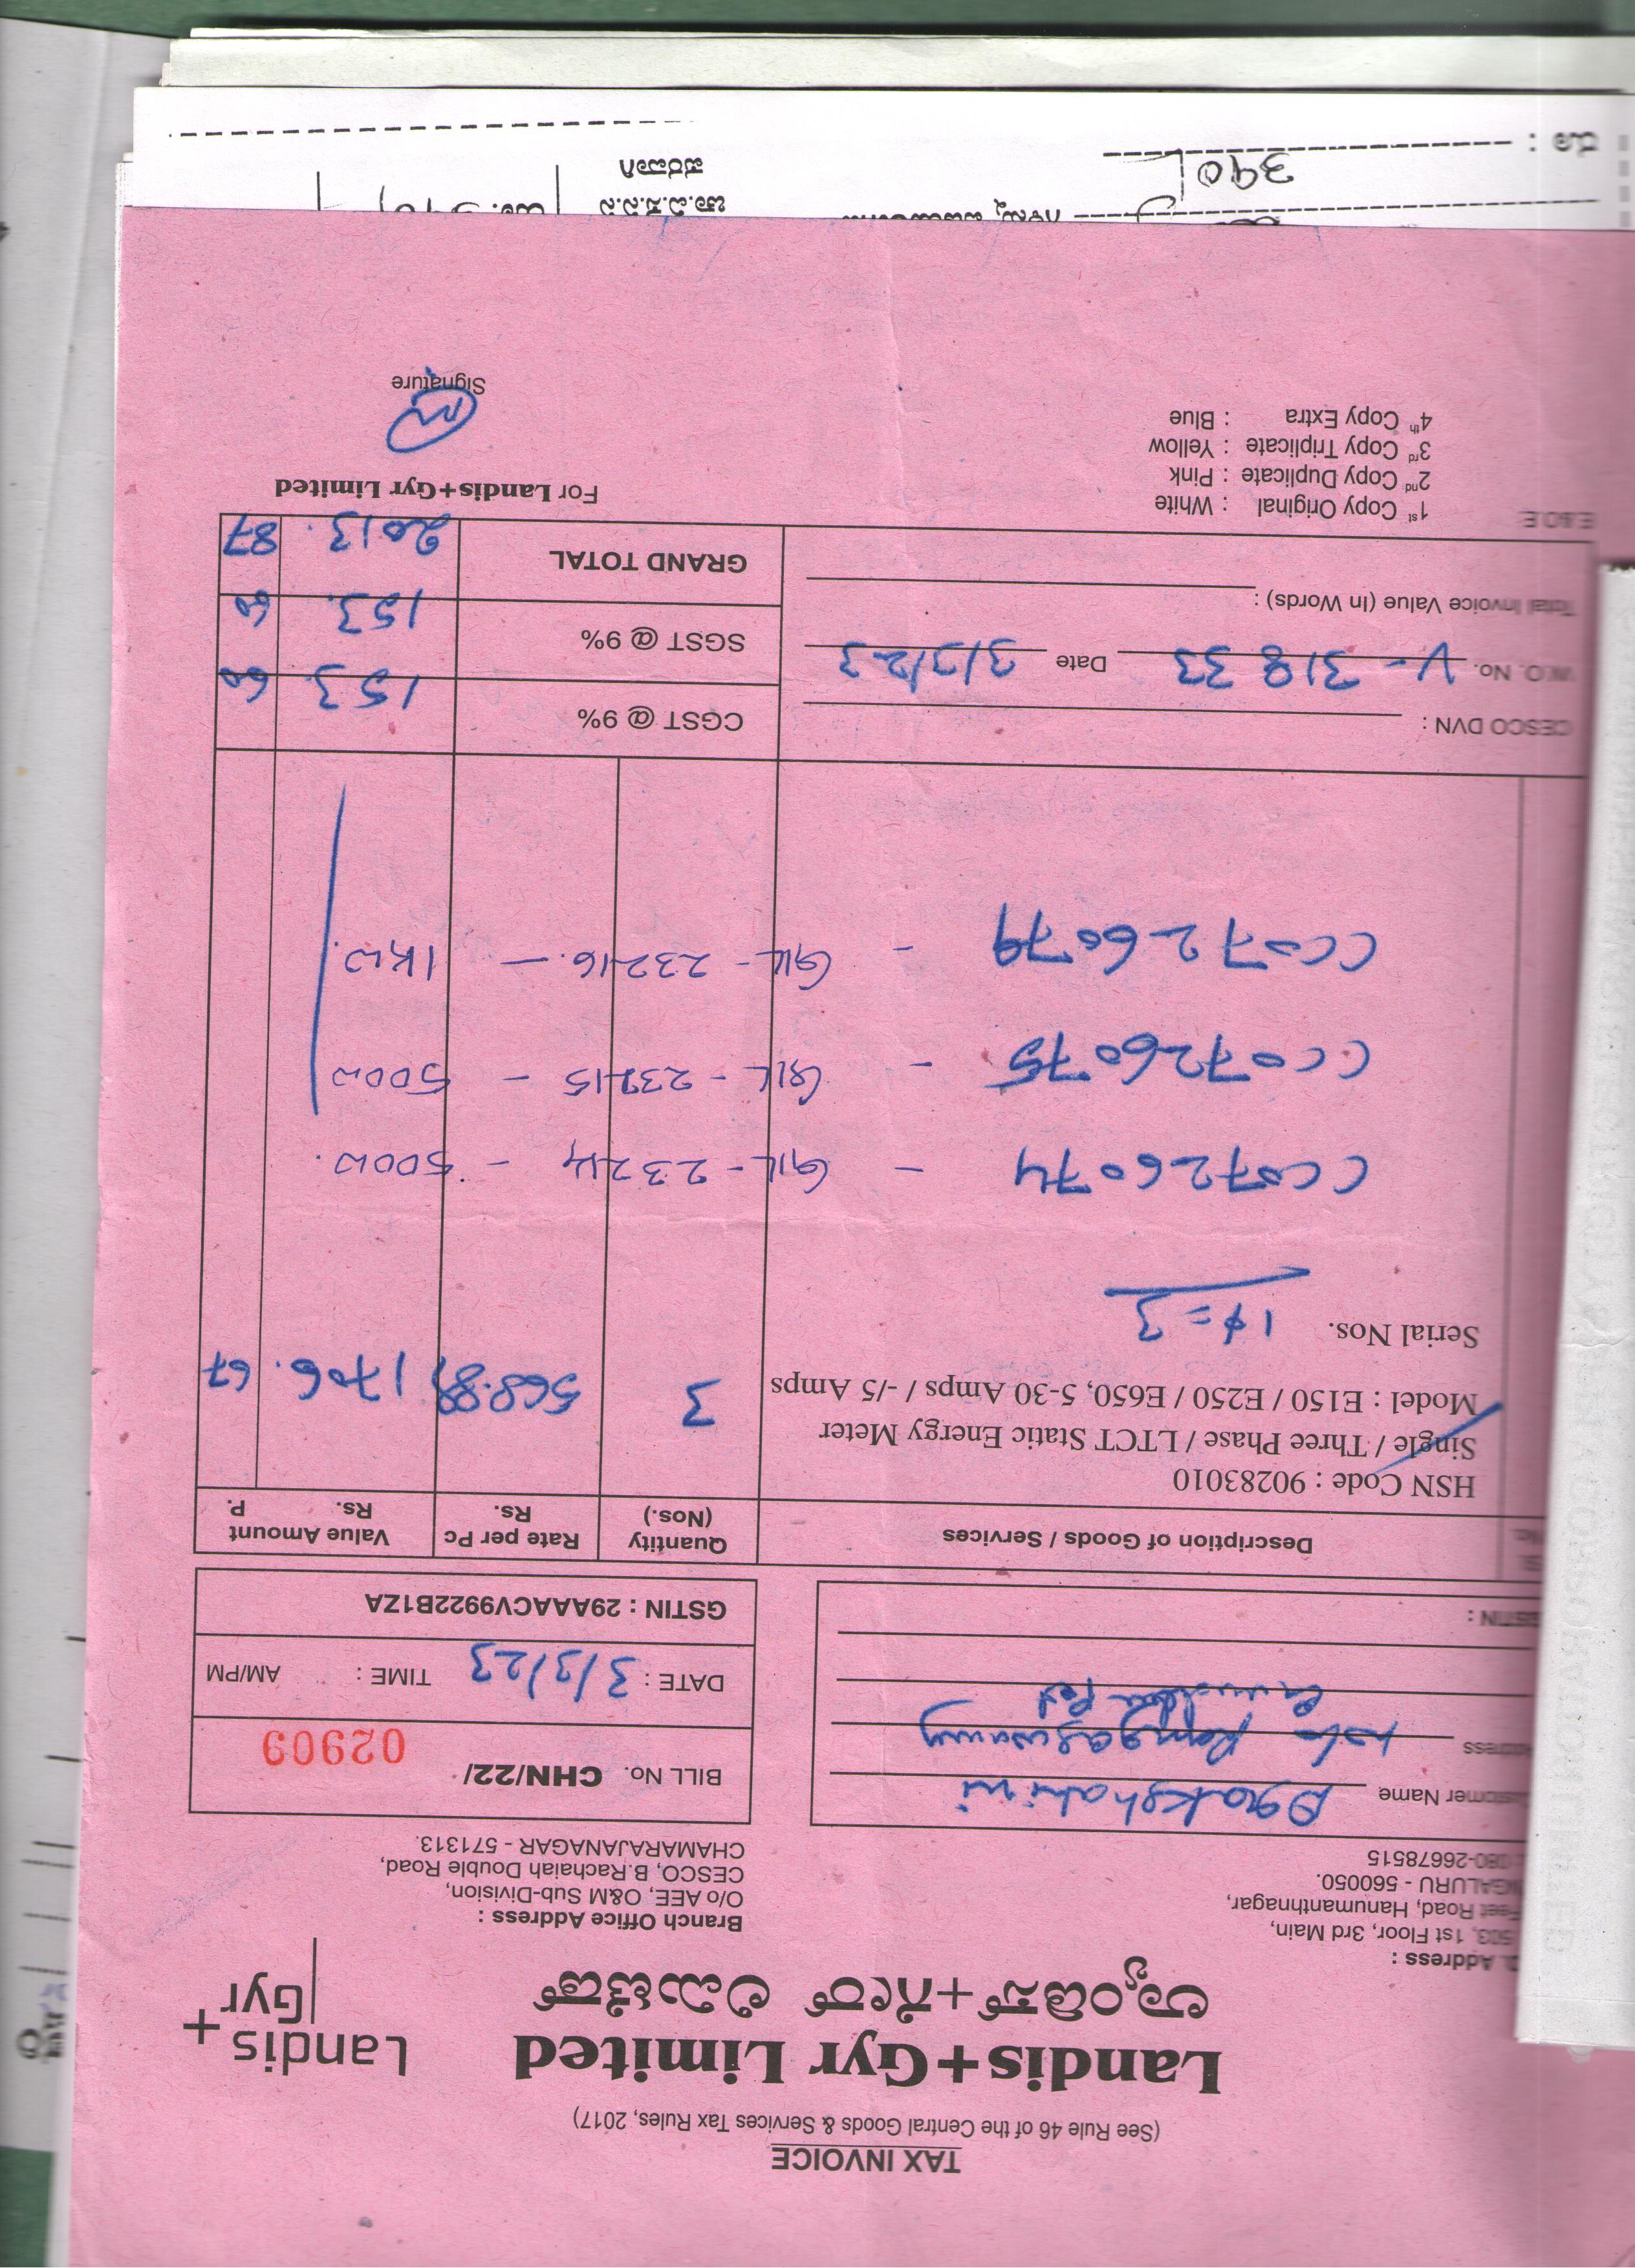 TAX INVOICE
(See Rule 46 of the Central Goods & Services Tax Rules, 2017)
Landis+Gyr Limited
ಲ್ಯಾಂಡಿಸ್+ಗೇರ್ ಲಿಮಿಟೆಡ್
Landis+
Gyr
Address :
503, 1st Floor, 3rd Main,
Feet Road, Hanumanthnagar,
NGALURU - 560050.
080-26678515
Branch Office Address :
O/o AEE, O&M Sub-Division,
CESCO, B.Rachaiah Double Road,
CHAMARAJANAGAR - 571313.
Customer Name
Address Rangaswamy
GSTIN :
BILL No. CHN/22/ 02909
DATE : 3/3/23 TIME : AM/PM
GSTIN : 29AAACV9922B1ZA
Description of Goods / Services Quantity (Nos.) Rate per Pc Rs. Value Amount Rs. P.
HSN Code : 90283010
Single / Three Phase / LTCT Static Energy Meter
Model : E150 / E250 / E650, 5-30 Amps / -/5 Amps 3 568.89 1706. 67
Serial Nos. 1φ = 3
CC0726074 - GIL - 23214 - 500W.
CC0726075 - GIL - 23215 - 500W
CC0726079 - GIL - 23216. - 1KW.
CESCO DVN :
CGST @ 9% 153. 60
W.O. No. V-31833 Date 3/3/23
SGST @ 9% 153. 60
Total Invoice Value (In Words) :
GRAND TOTAL 2013. 87
E.&O.E
For Landis+Gyr Limited
1st Copy Original : White
2nd Copy Duplicate : Pink
3rd Copy Triplicate : Yellow
4th Copy Extra : Blue
Signature
390
ಚಾ.ವಿ.ಸ.ನಿ.ನಿ
ಪರವಾಗಿ